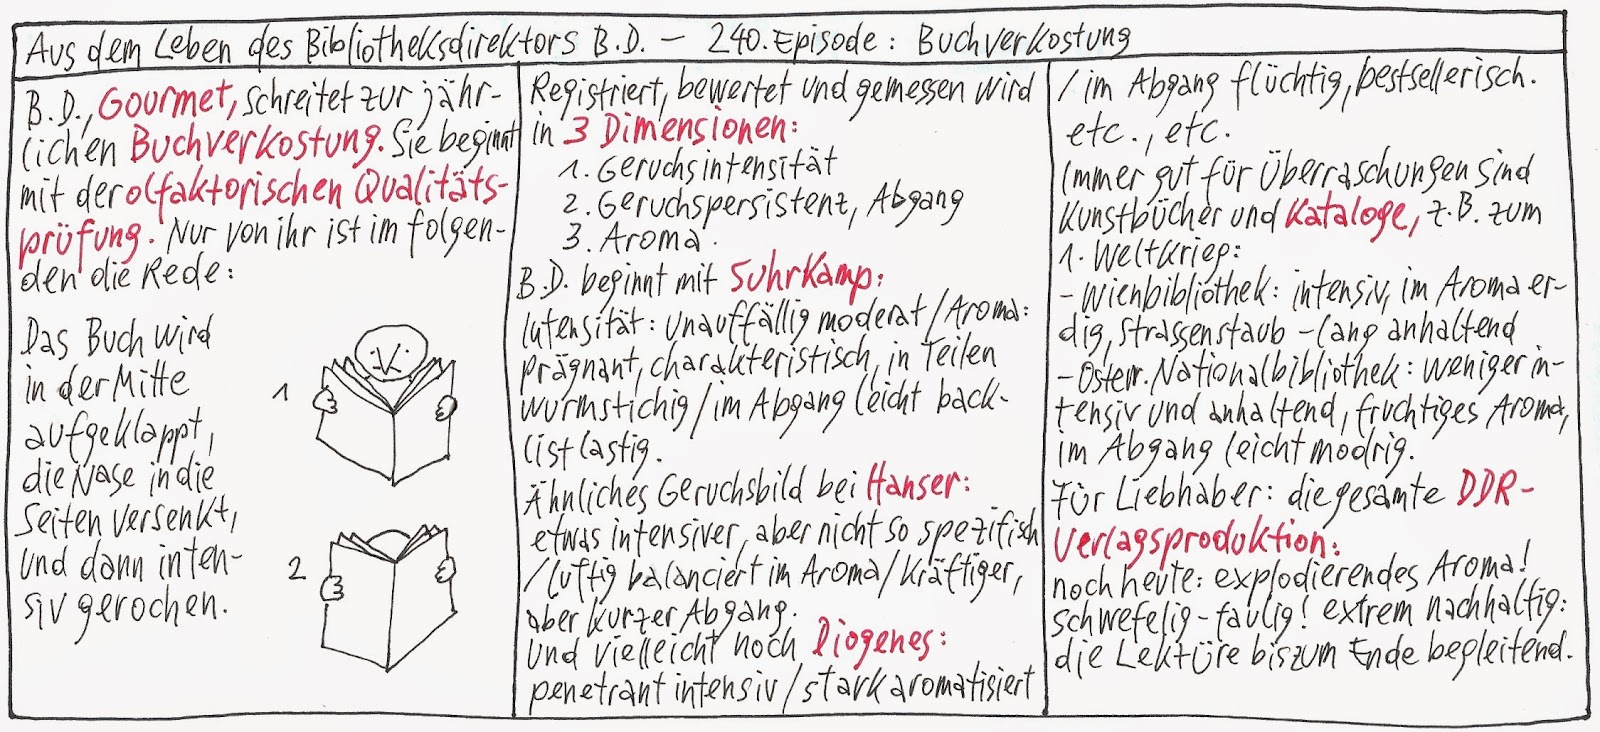 Aus dem Leben des Bibliotheksdirektors B.D. – 240. Episode: Buchverkostung
B.D., Gourmet, schreitet zur jähr-
lichen Buchverkostung. Sie beginnt
mit der olfaktorischen Qualitäts-
prüfung. Nur von ihr ist im folgen-
den die Rede:
Das Buch wird
in der Mitte
aufgeklappt,
die Nase in die
Seiten versenkt,
und dann inten-
siv gerochen.
1
2
Registriert, bewertet und gemessen wird
in 3 Dimensionen:
1. Geruchsintensität
2. Geruchspersistenz, Abgang
3. Aroma.
B.D. beginnt mit Suhrkamp:
Intensität: unauffällig moderat / Aroma:
prägnant, charakteristisch, in Teilen
wurmstichig / im Abgang leicht back-
listlastig.
Ähnliches Geruchsbild bei Hanser:
etwas intensiver, aber nicht so spezifisch
/ luftig balanciert im Aroma / kräftiger,
aber kurzer Abgang.
Und vielleicht noch Diogenes:
penetrant intensiv / stark aromatisiert
/ im Abgang flüchtig, bestsellerisch.
etc., etc.
Immer gut für Überraschungen sind
Kunstbücher und Kataloge, z.B. zum
1. Weltkrieg:
- Wienbibliothek: intensiv, im Aroma er-
dig, Strassenstaub - lang anhaltend
- Österr. Nationalbibliothek: weniger in-
tensiv und anhaltend, fruchtiges Aroma,
im Abgang leicht modrig.
Für Liebhaber: die gesamte DDR-
Verlagsproduktion:
noch heute: explodierendes Aroma!
schwefelig-faulig! extrem nachhaltig:
die Lektüre bis zum Ende begleitend.